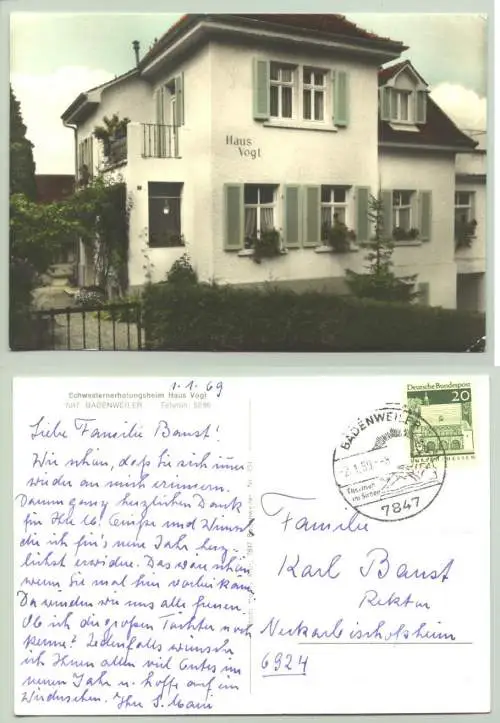 Haus
Vogt
1.1.69
Schwesternerholungsheim Haus Vogt
7847 BADENWEILER Telefon:
Liebe Familie Banst!
Wie schön, daß Sie sich immer
wieder an mich erinnern.
Darum ganz herzlichen Dank
für Ihre lb. Grüße und Wünsche
die ich für's neue Jahr herz-
lichst erwidre. Das wäre schön
wenn Sie mal hier vorbei kämen
Da würden wir uns alle freuen.
Ob ich die großen Töchter noch
kenne? Jedenfalls wünsche
ich Ihnen allen viel Gutes im
neuen Jahr u. hoffe auf ein
Wiedersehen. Ihre S. Marie
Deutsche Bundespost
20
BADENWEILER
-2.1.69-8
Thermen
im Süden
7847
Familie
Karl Banst
Rektor
Neckarbischofsheim
6924